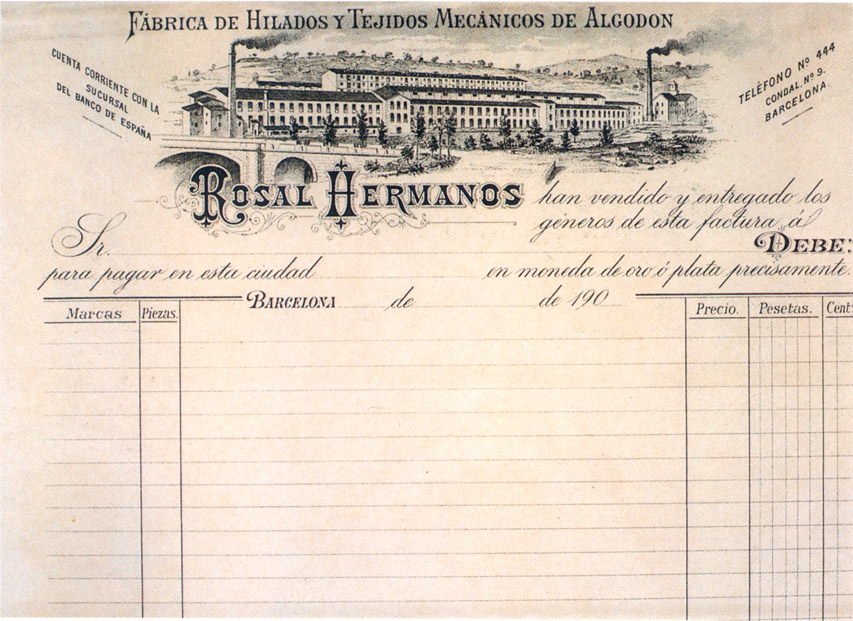 FÁBRICA DE HILADOS Y TEJIDOS MECÁNICOS DE ALGODON
CUENTA CORRIENTE CON LA
SUCURSAL
DEL BANCO DE ESPAÑA
TELÉFONO Nº 444
CONDAL, Nº 9.
BARCELONA.
ROSAL HERMANOS han vendido y entregado los
géneros de esta factura á
Sr. DEBE:
para pagar en esta ciudad en moneda de oro ó plata precisamente.
BARCELONA de de 190
Marcas Piezas. Precio. Pesetas. Cent